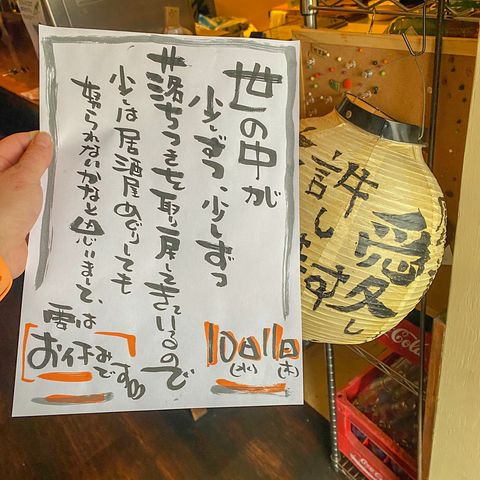 世の中が
少しずつ、少しずつ
落ちつきを取り戻してきているので
少しは居酒屋めぐりしても
怒られないかなと思いまして、
雲は
お休みです
10日(水)
11日(木)
許し
愛し
Coca-Cola